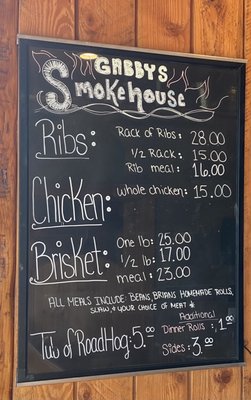 GABBYS
Smokehouse
Ribs: Rack of Ribs: 28.00
1/2 Rack: 15.00
Rib meal: 16.00
Chicken: whole chicken: 15.00
Brisket: One lb: 25.00
1/2 lb: 17.00
meal: 23.00
ALL MEALS INCLUDE: BEANS, BRYANS HOMEMADE ROLLS,
SLAW, & YOUR CHOICE OF MEAT *
Additional
Tub of RoadHog: 5.00 Dinner Rolls: 1.00
Sides: 3.00